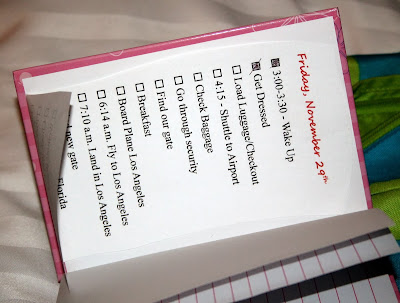 Friday, November 29th
3:00-3:30 - Wake Up
Get Dressed
Load Luggage/Checkout
4:15 - Shuttle to Airport
Check Baggage
Go through security
Find our gate
Breakfast
Board Plane Los Angeles
6:14 a.m. Fly to Los Angeles
7:10 a.m. Land in Los Angeles
new gate
Florida